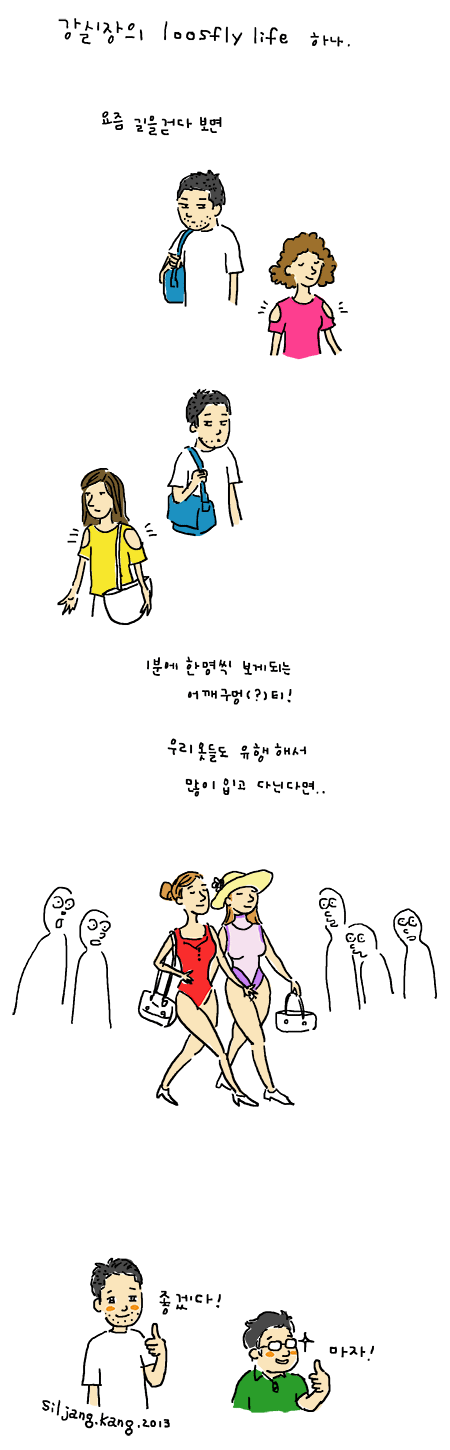 강실장의 loosfly life 하나.
요즘 길을걷다 보면
1분에 한명씩 보게되는
어깨구멍(?)티!
우리옷들도 유행해서
많이 입고 다닌다면..
좋겠다!
마자!
siljang.kang.2013